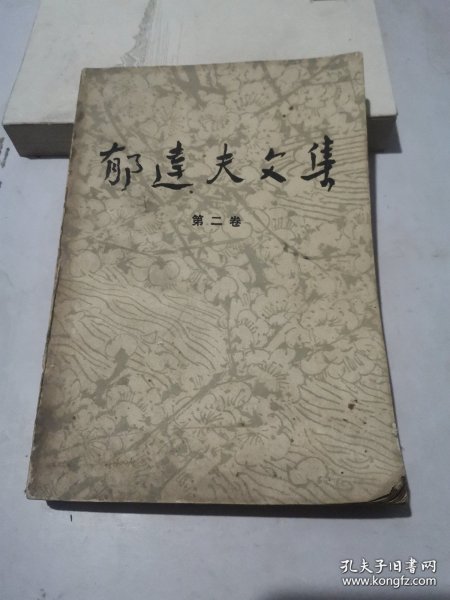 郁達夫文集
第二卷
孔夫子旧书网
www.kongfz.com